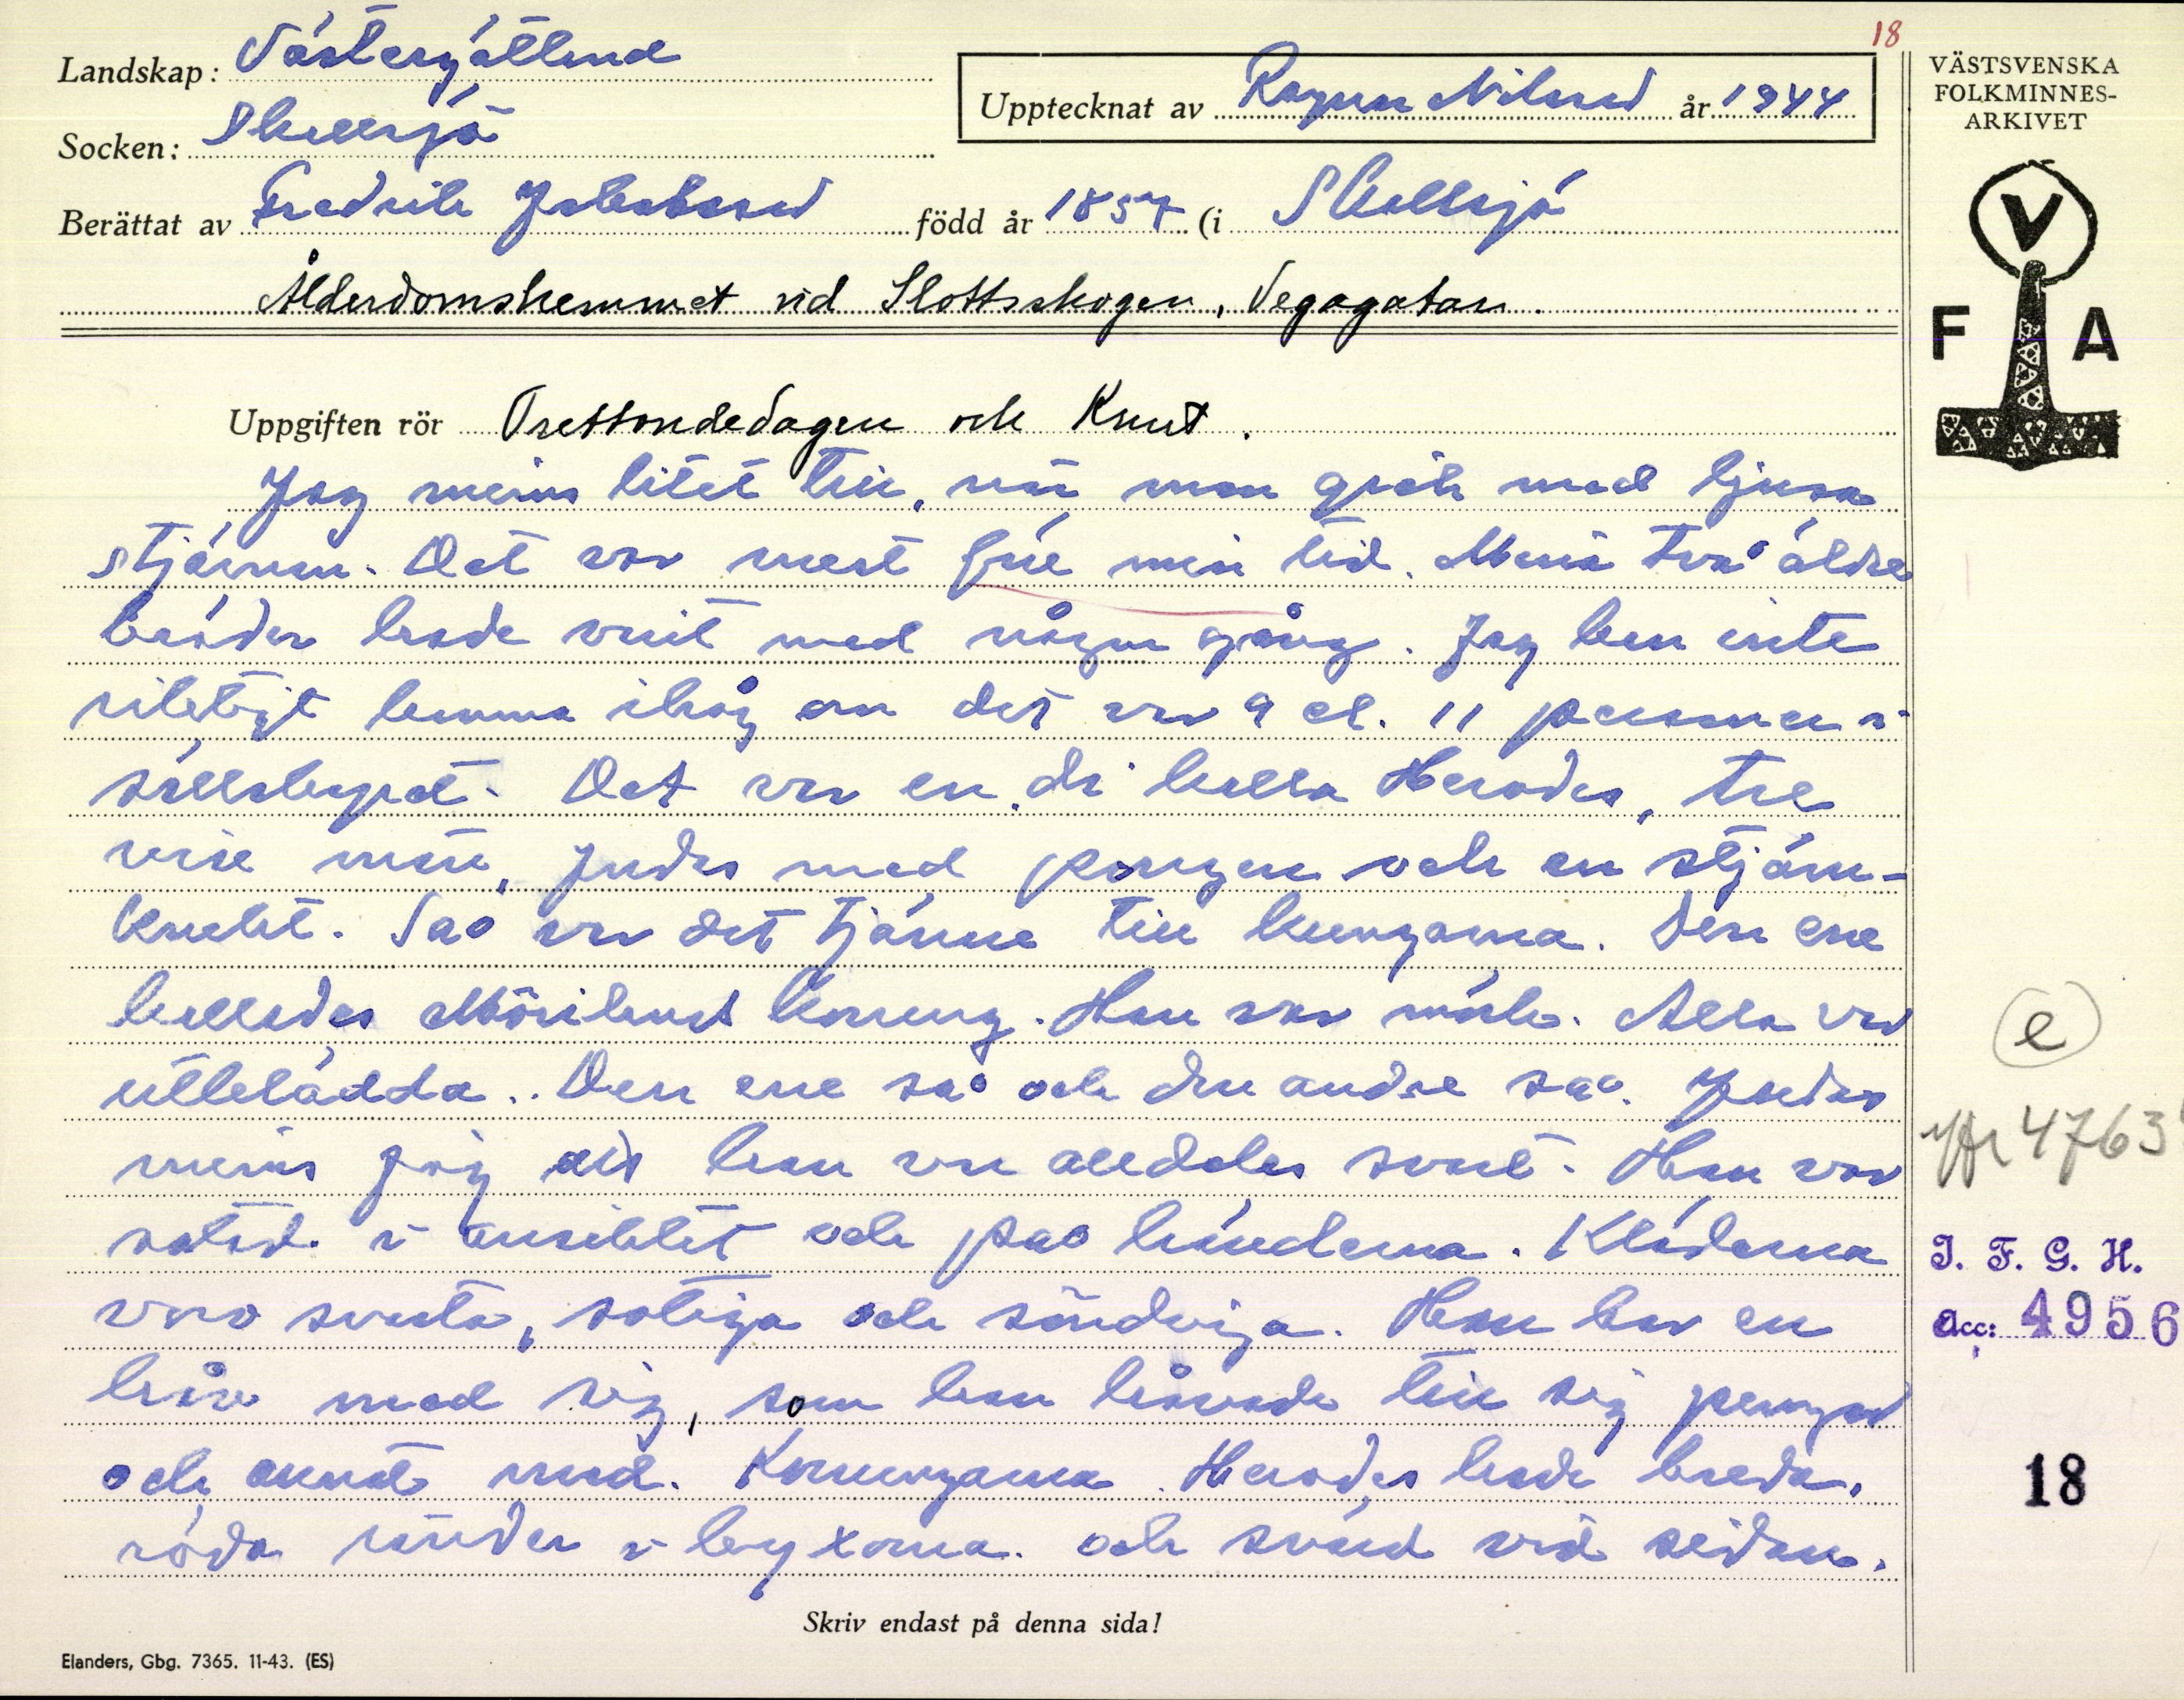 18
Landskap: Västergötland
Socken: Skallsjö
Upptecknat av Ragnar Nilsson år 1944
Berättat av Fredrik Jakobsson född år 1857 (i Skallsjö
Ålderdomshemmet vid Slottsskogen, Vegagatan.
VÄSTSVENSKA
FOLKMINNES-
ARKIVET
V
F A
Uppgiften rör Trettondedagen och Knut.
Jag minns litet till, när man gick med ljusa
stjärnan. Det var mest före min tid. Mina två äldre
bröder hade varit med någon gång. Jag kan inte
riktigt komma ihåg om det var 9 el. 11 personer i
sällskapet. Det var en di kalla Herodes, tre
vise män, Judas med pungen och en stjärn-
knekt. Så var det tjänne till kungarna. Den ene
kallades Mörikens konung. Han var mörk. Alla var
utklädda. Den ene så och den andre så. Judas
minns jag att han var alldeles svart. Han var
sotad i ansiktet och på händerna. Kläderna
voro svarta, sotiga och söndriga. Han bar en
håv med sig, som han håvade till sig pengar
och annat med. Konungarna Herodes hade breda,
röda ränder i byxorna och svärd vid sidan.
e
4763
I. F. G. H.
Acc: 4956
18
Skriv endast på denna sida!
Elanders, Gbg. 7365. 11-43. (ES)